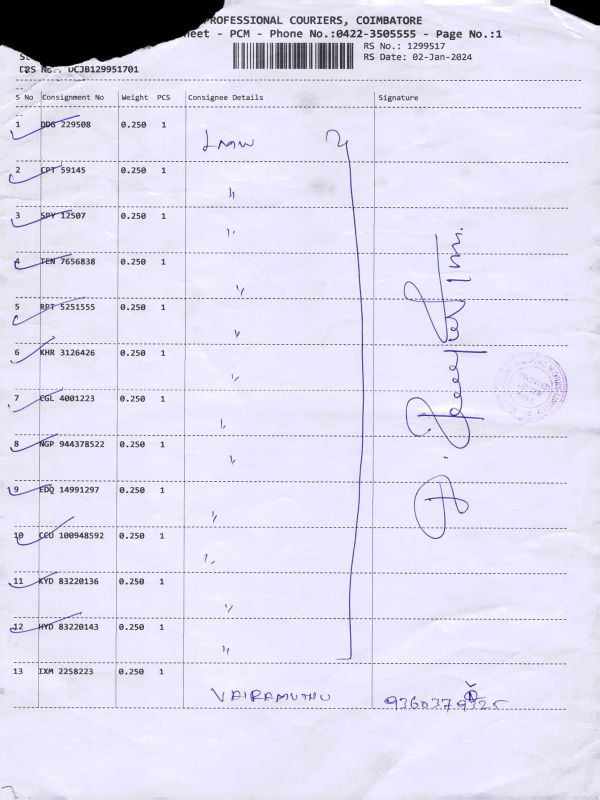 PROFESSIONAL COURIERS, COIMBATORE
heet - PCM - Phone No.:0422-3505555 - Page No.:1
RS No.: 1299517
RS Date: 02-Jan-2024
DCJB129951701
S No Consignment No Weight PCS Consignee Details Signature
1 DDG 229508 0.250 1
LMW
2 CPT 59145 0.250 1
"
3 SPY 12507 0.250 1
"
4 TEN 7656838 0.250 1
"
5 RPT 5251555 0.250 1
"
6 KHR 3126426 0.250 1
"
7 CGL 4001223 0.250 1
"
8 NGP 944378522 0.250 1
"
9 EDQ 14991297 0.250 1
"
10 CCU 100948592 0.250 1
"
11 KYD 83220136 0.250 1
"
12 HYD 83220143 0.250 1
"
13 IXM 2258223 0.250 1
VAIRAMUTHU